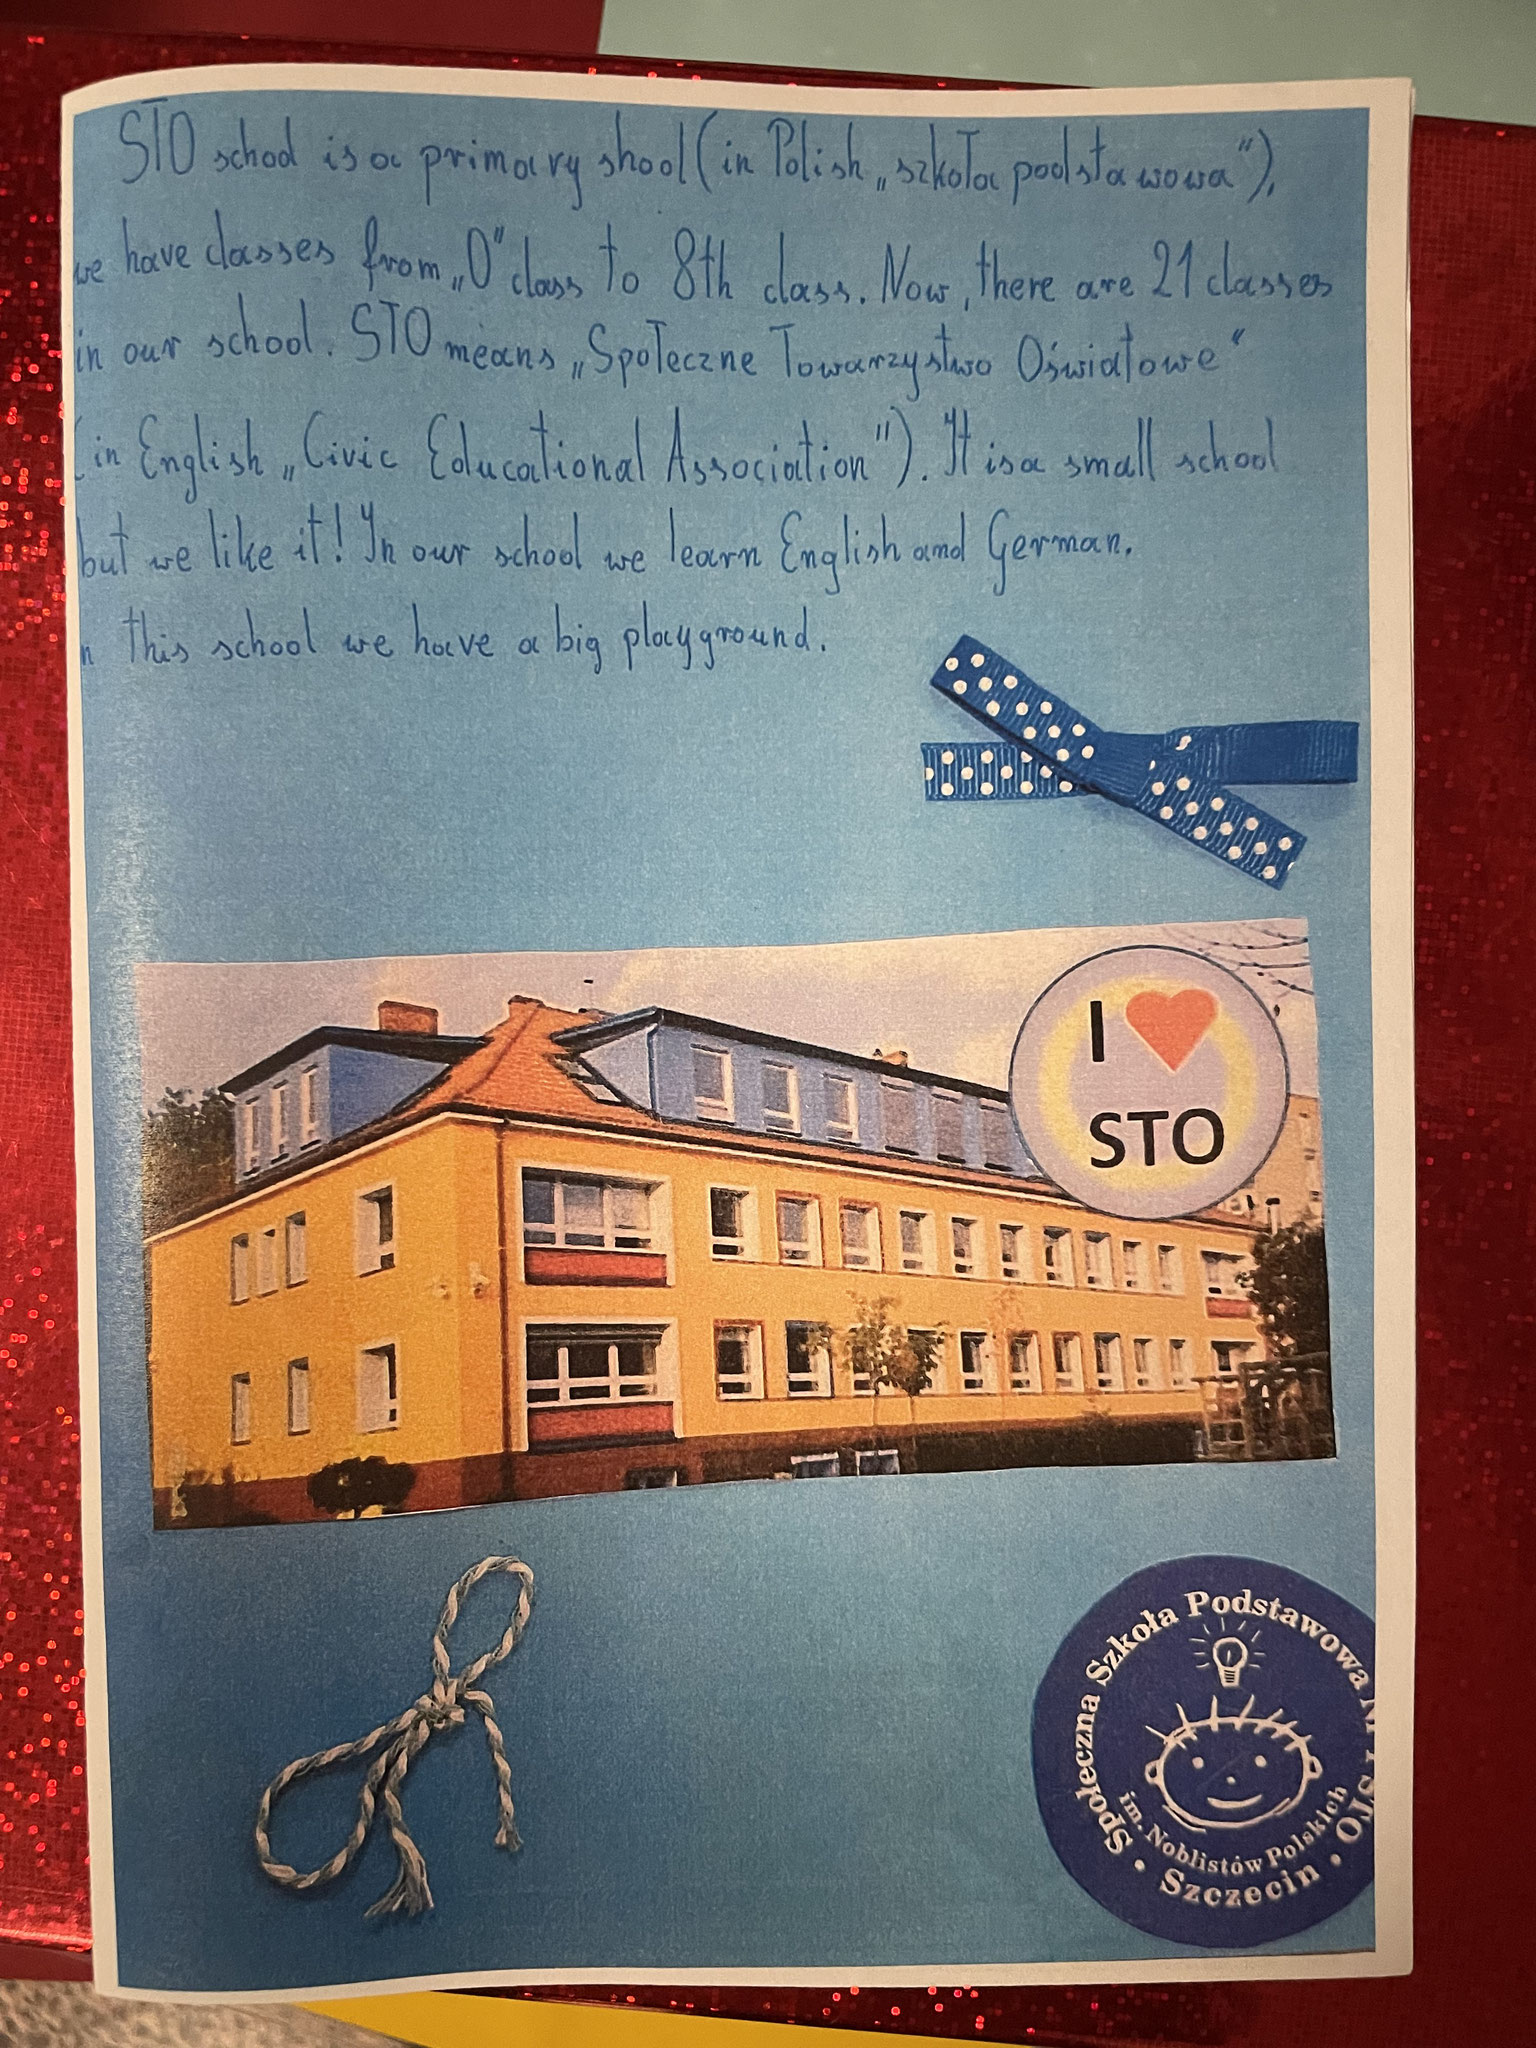 STO school is a primary shool (in Polish „szkoła podstawowa"),
we have classes from „0" class to 8th class. Now, there are 21 classes
in our school. STO means „Społeczne Towarzystwo Oświatowe"
(in English „Civic Educational Association"). It is a small school
but we like it! In our school we learn English and German.
n this school we have a big playground.
I ♥
STO
Społeczna Szkoła Podstawowa Nr 1 STO
im. Noblistów Polskich
• Szczecin •